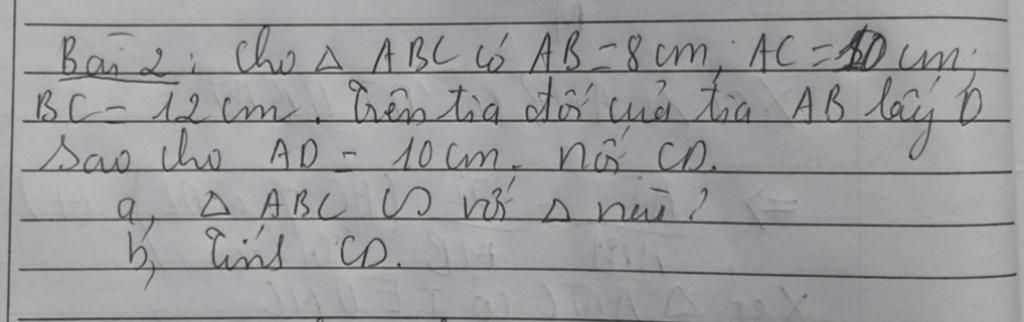 Bài 2: Cho Δ ABC có AB = 8 cm, AC = 10 cm,
BC = 12 cm. Trên tia đối của tia AB lấy D
sao cho AD = 10 cm. Nối CD.
a, Δ ABC ∽ với Δ nào?
b, Tính CD.